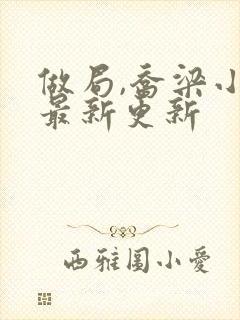 做局,乔梁小
最新更新
西雅图小爱